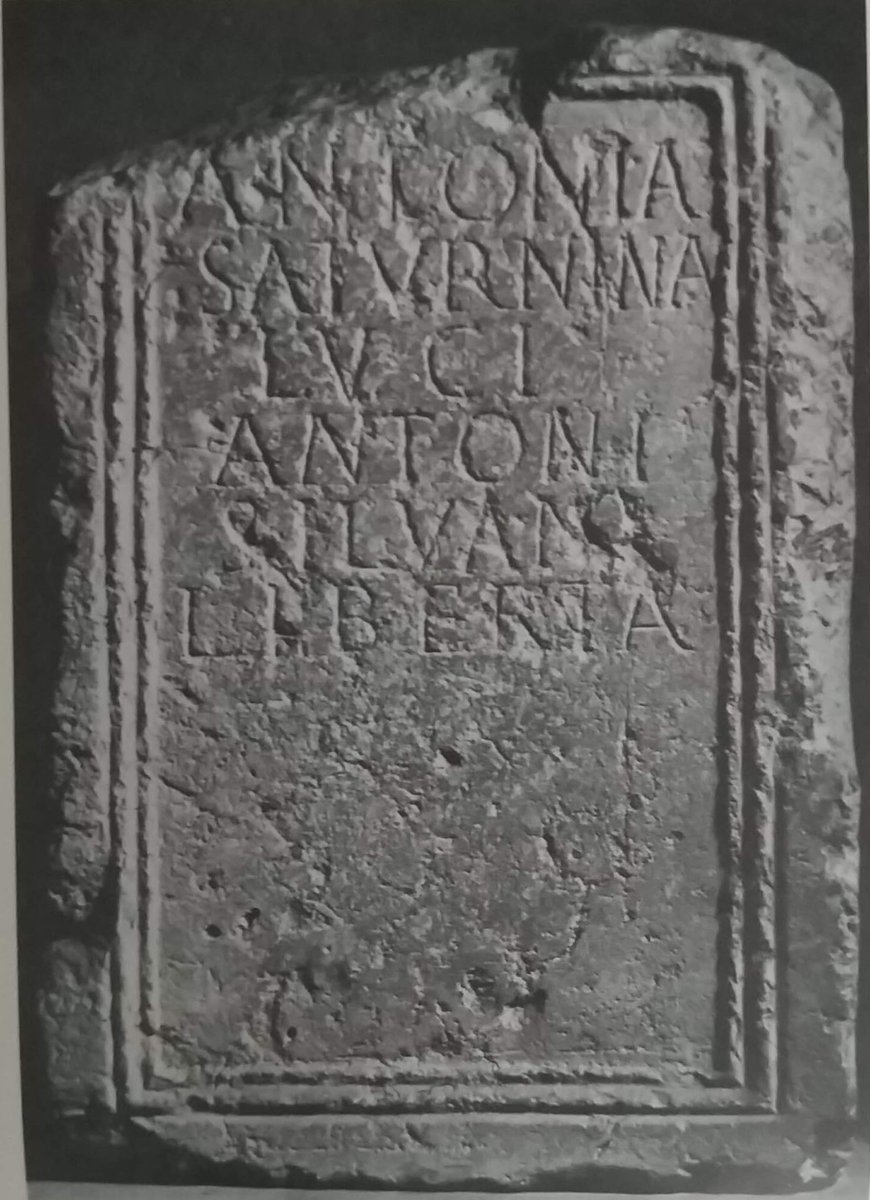 ANTONIA
SATVRNINA
LVCI
ANTONI
SILVANI
LIBERTA